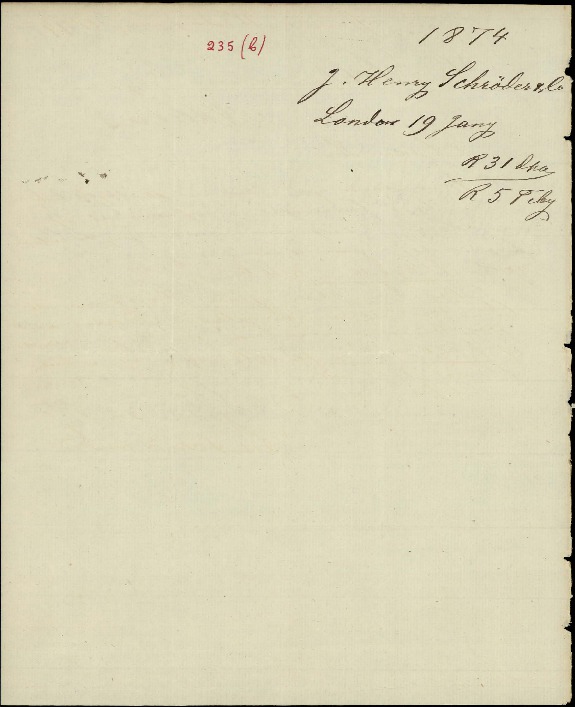 235 (b)
1874
J. Henry Schröder & Co
London 19 Jany
R 31
R 5 Feby